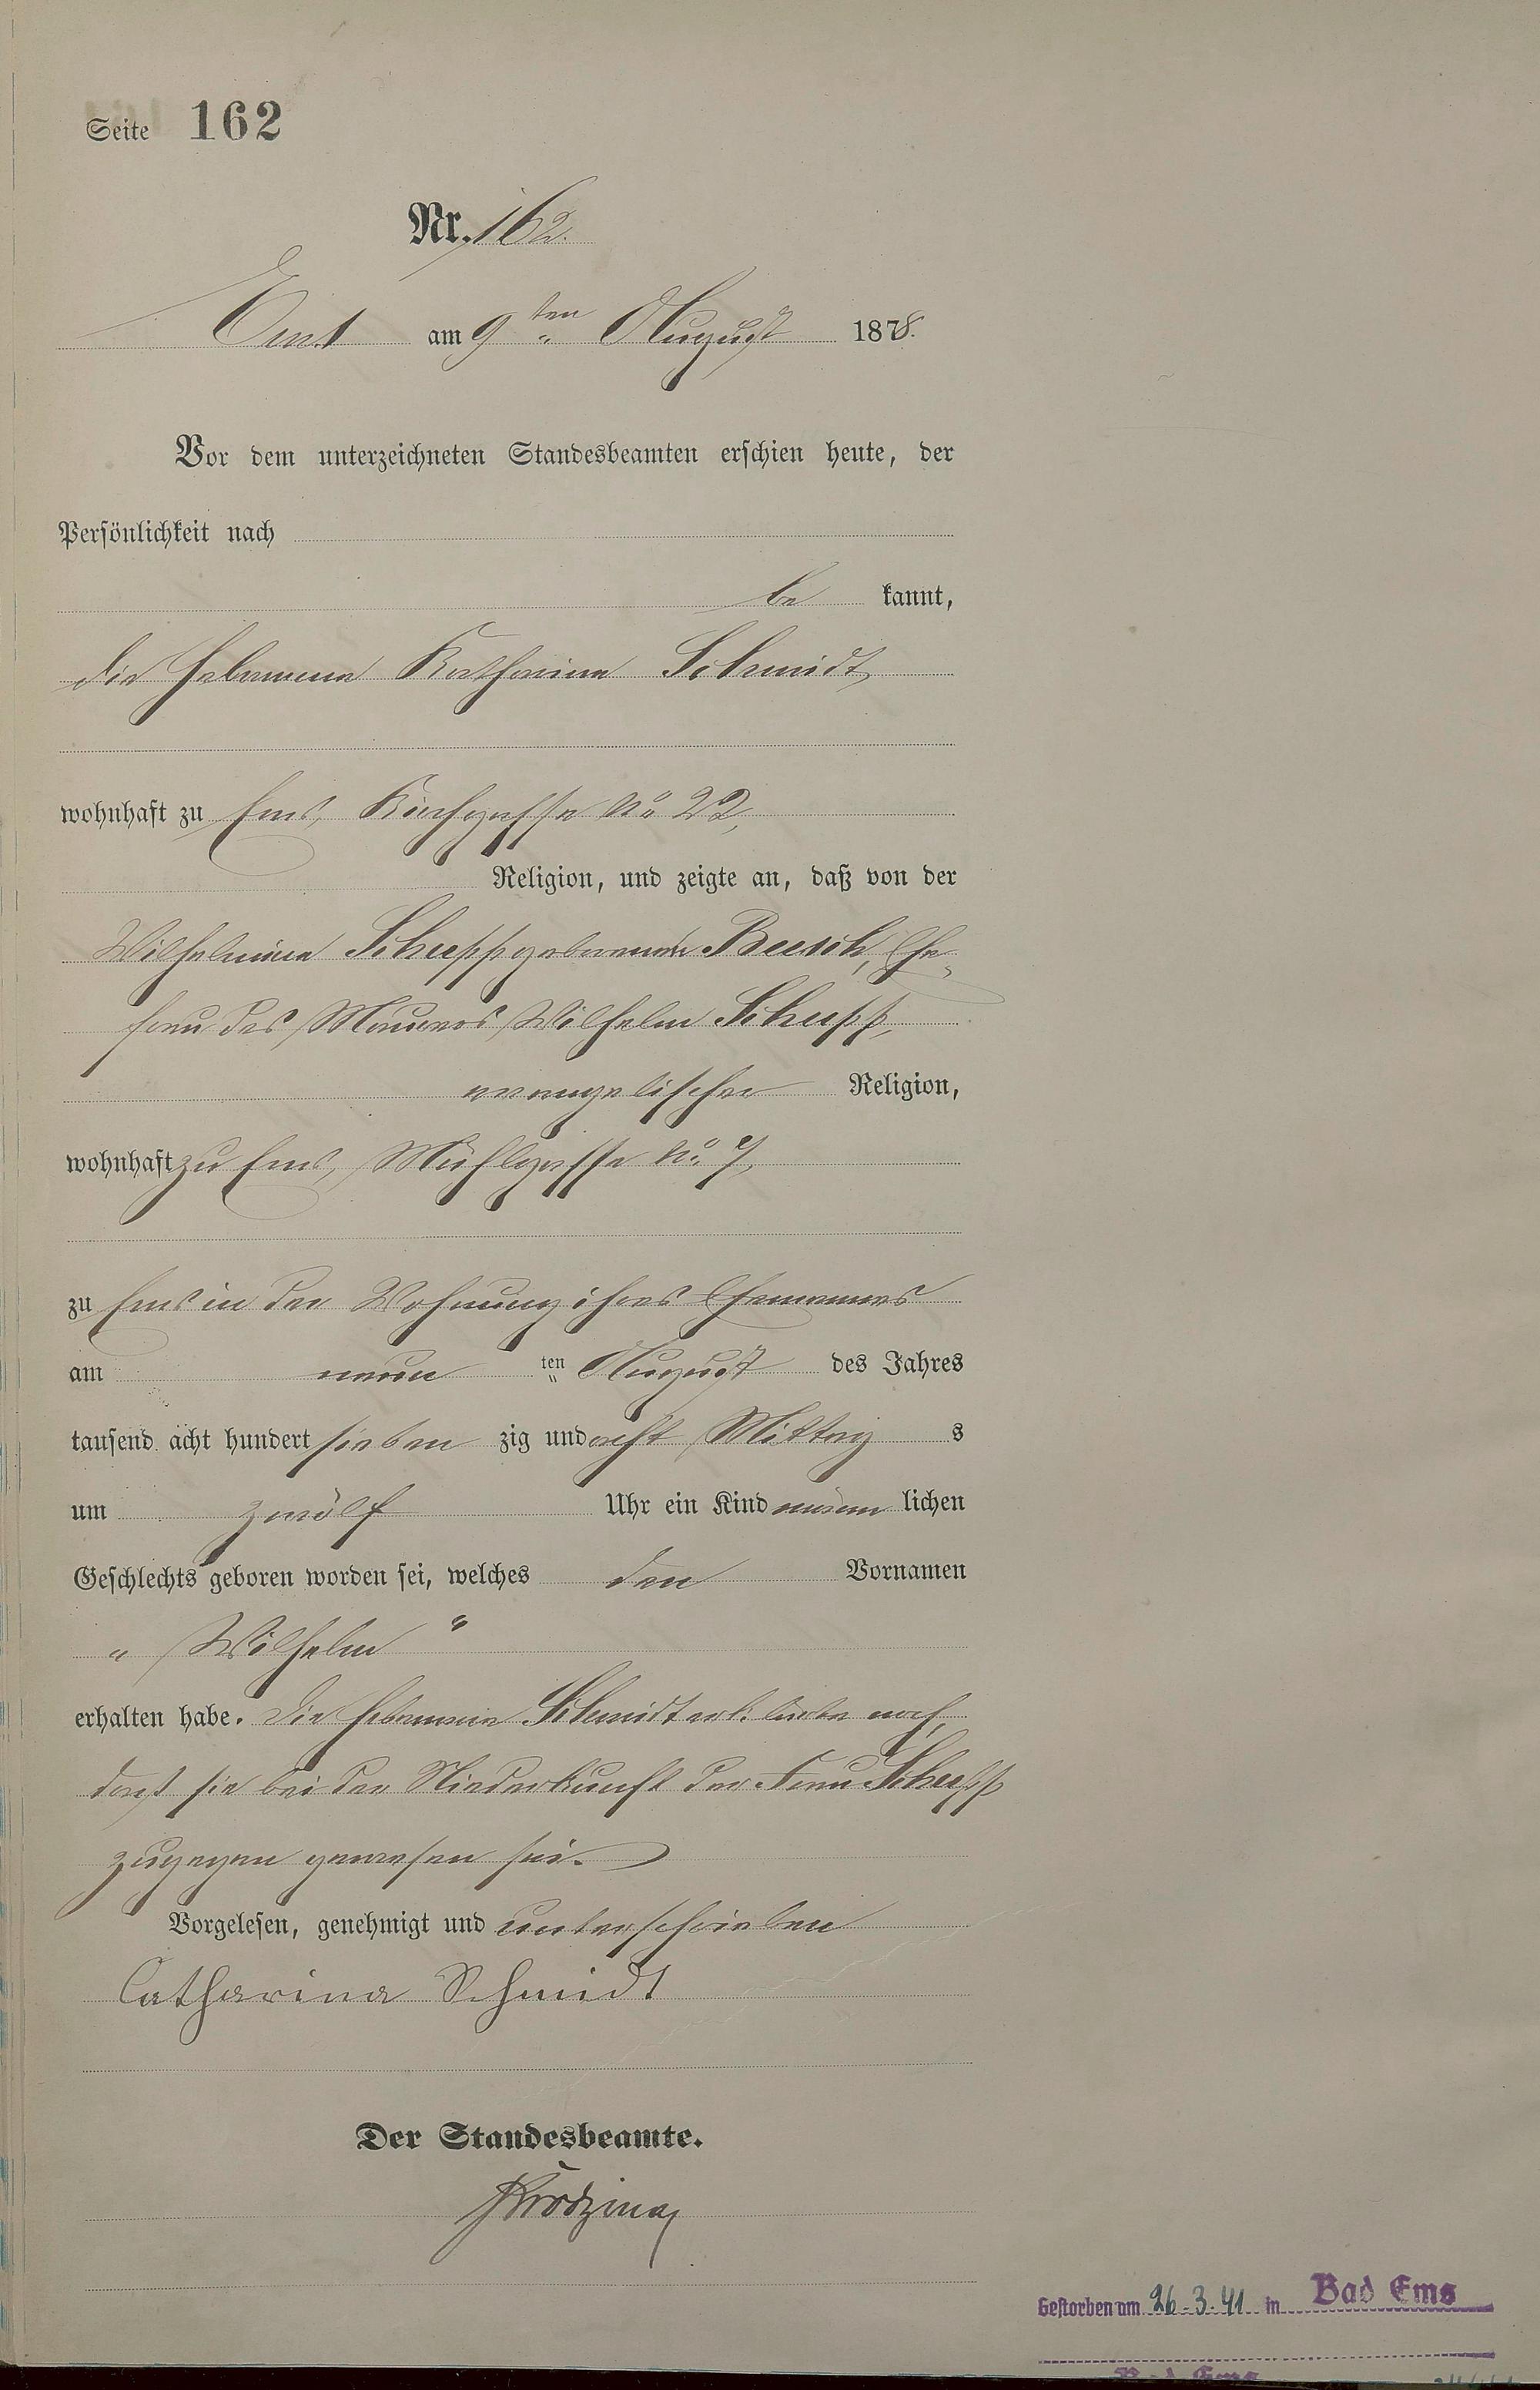 Seite 162
Nr. 162.
Ems am 9ten August 1878.
Vor dem unterzeichneten Standesbeamten erschien heute, der
Persönlichkeit nach
be kannt,
die Hebamme Katharina Schmidt,
wohnhaft zu Ems, Kirchgasse No 22,
Religion, und zeigte an, daß von der
Wilhelmine Schupp geborene Beusch, Ehe-
frau des Maurers Wilhelm Schupp,
evangelischer Religion,
wohnhaft zu Ems, Mühlgasse No. 7,
zu Ems in der Wohnung ihres Ehemannes
am neun ten August des Jahres
tausend acht hundert sieben zig und acht Mittag s
um zwölf Uhr ein Kind männ lichen
Geschlechts geboren worden sei, welches den Vornamen
„ Wilhelm "
erhalten habe. Die Hebamme Schmidt erklärte noch,
daß sie bei der Niederkunft der Frau Schupp
zugegen gewesen sei.
Vorgelesen, genehmigt und unterschrieben
Catharina Schmidt
Der Standesbeamte.
Gestorben am 26.3.41 in Bad Ems
Bad Ems